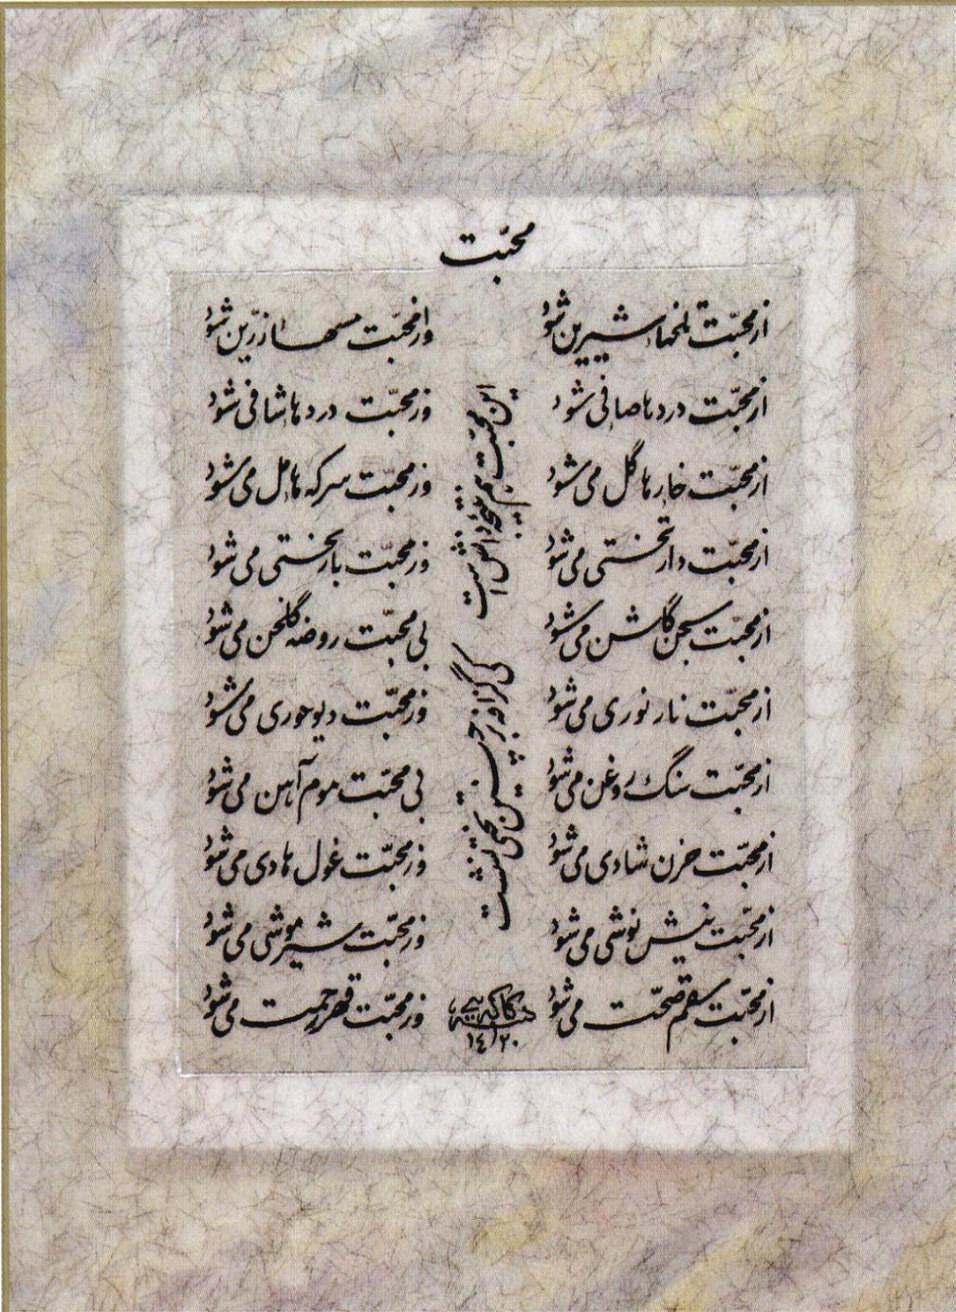 محبّت
از محبّت تلخها شیرین شود
وز محبّت مسها زرّین شود
از محبّت دردها صافی شود
وز محبّت دردها شافی شود
از محبّت خارها گل می شود
وز محبّت سرکه ها مل می شود
از محبّت دار تختی می شود
وز محبّت بار بختی می شود
از محبّت سجن گلشن می شود
بی محبّت روضه گلخن می شود
از محبّت نار نوری می شود
وز محبّت دیو حوری می شود
از محبّت سنگ روغن می شود
بی محبّت موم آهن می شود
از محبّت حزن شادی می شود
وز محبّت غول هادی می شود
از محبّت نیش نوشی می شود
وز محبّت شیر موشی می شود
از محبّت سقم صحّت می شود
وز محبّت قهر رحمت می شود
این محبّت هم نتیجه دانش است
کی گزافه بر چنین تختی نشست
١٤٢٠